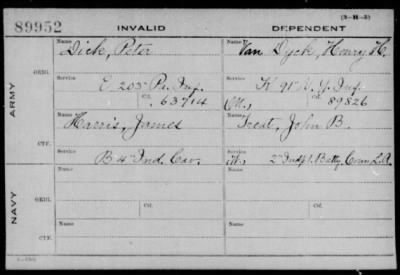 (3-H-5)
89952 INVALID DEPENDENT
ARMY
ORIG.
Name Name
Dick, Peter Van Dyck, Henry H.
Service Service
E 205 Pa. Inf. K 91 N.Y. Inf.
Ctf. 63714 (M.) Ctf. 89826
CTF.
Name Name
Harris, James Trest, John B.
Service Service
B 4 Ind. Cav. (W.) 2" Indp't. Batty. Conn. L.A.
NAVY
ORIG.
Name Name
Service Ctf. Service Ctf.
CTF.
Name Name
Service Service